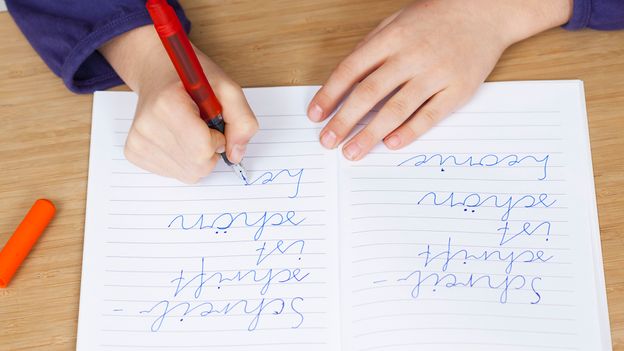 Schreib-
schrift
ist
schön
Leonie
Schreib-
schrift
ist
schön